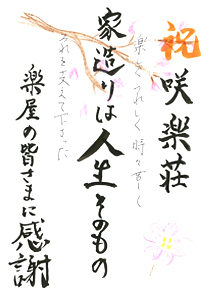 祝
咲楽荘
楽しくうれしく時々苦しく
家造りは人生そのもの
それを支えて下さった
楽屋の皆さまに感謝